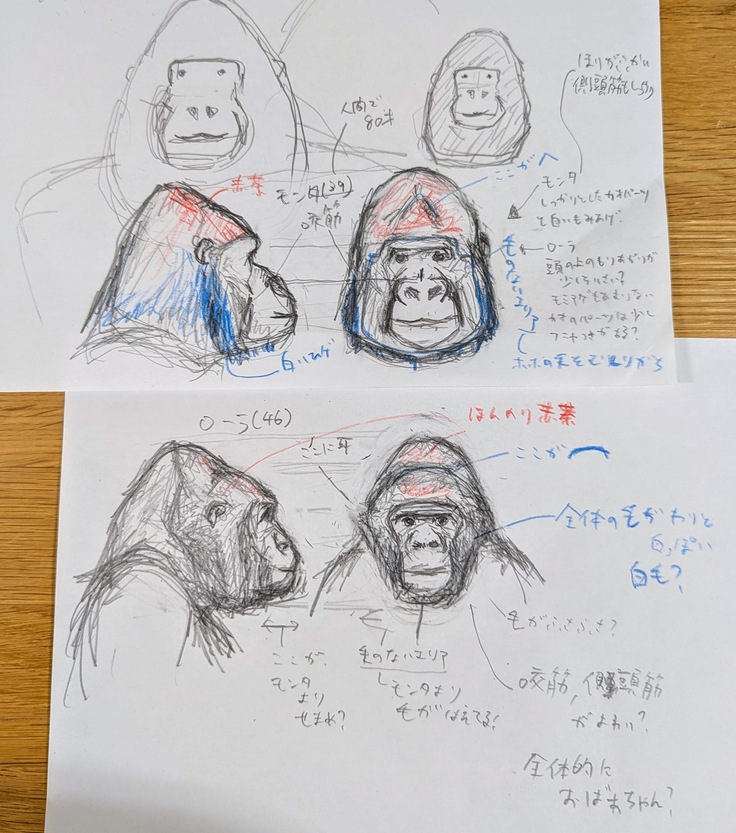 人間で
80才
ほりがふかい
側頭筋もしっかり
赤茶
モンタ(39)
咬筋
ここがへ
モンタ
しっかりとしたカオパーツ
と白いもみあげ
ローラ
頭の上のもりあがりが
少しちいさい?
モミアゲもあまりない
カオのパーツは少し
毛のないエリア
ホホの毛をむしりがち
白いヒゲ
ローラ(46)
ほんのり赤茶
ここに耳
ここが
全体の毛がわりと
白っぽい
白毛?
毛がふさふさ?
ここが
モンタ
より
せまめ?
毛のないエリア
モンタより
毛がはえてる!
咬筋,側頭筋
がよわい?
全体的に
おばあちゃん?